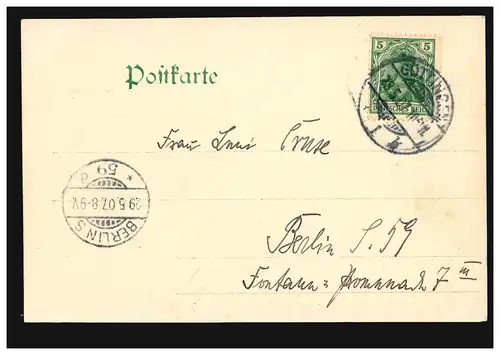 5 5
DEUTSCHES REICH
GÖTTINGEN
Postkarte
Frau
* 59 a
29.5.07. 8-9V.
BERLIN S
Berlin S. 59
Fontane-Promenade 7 III